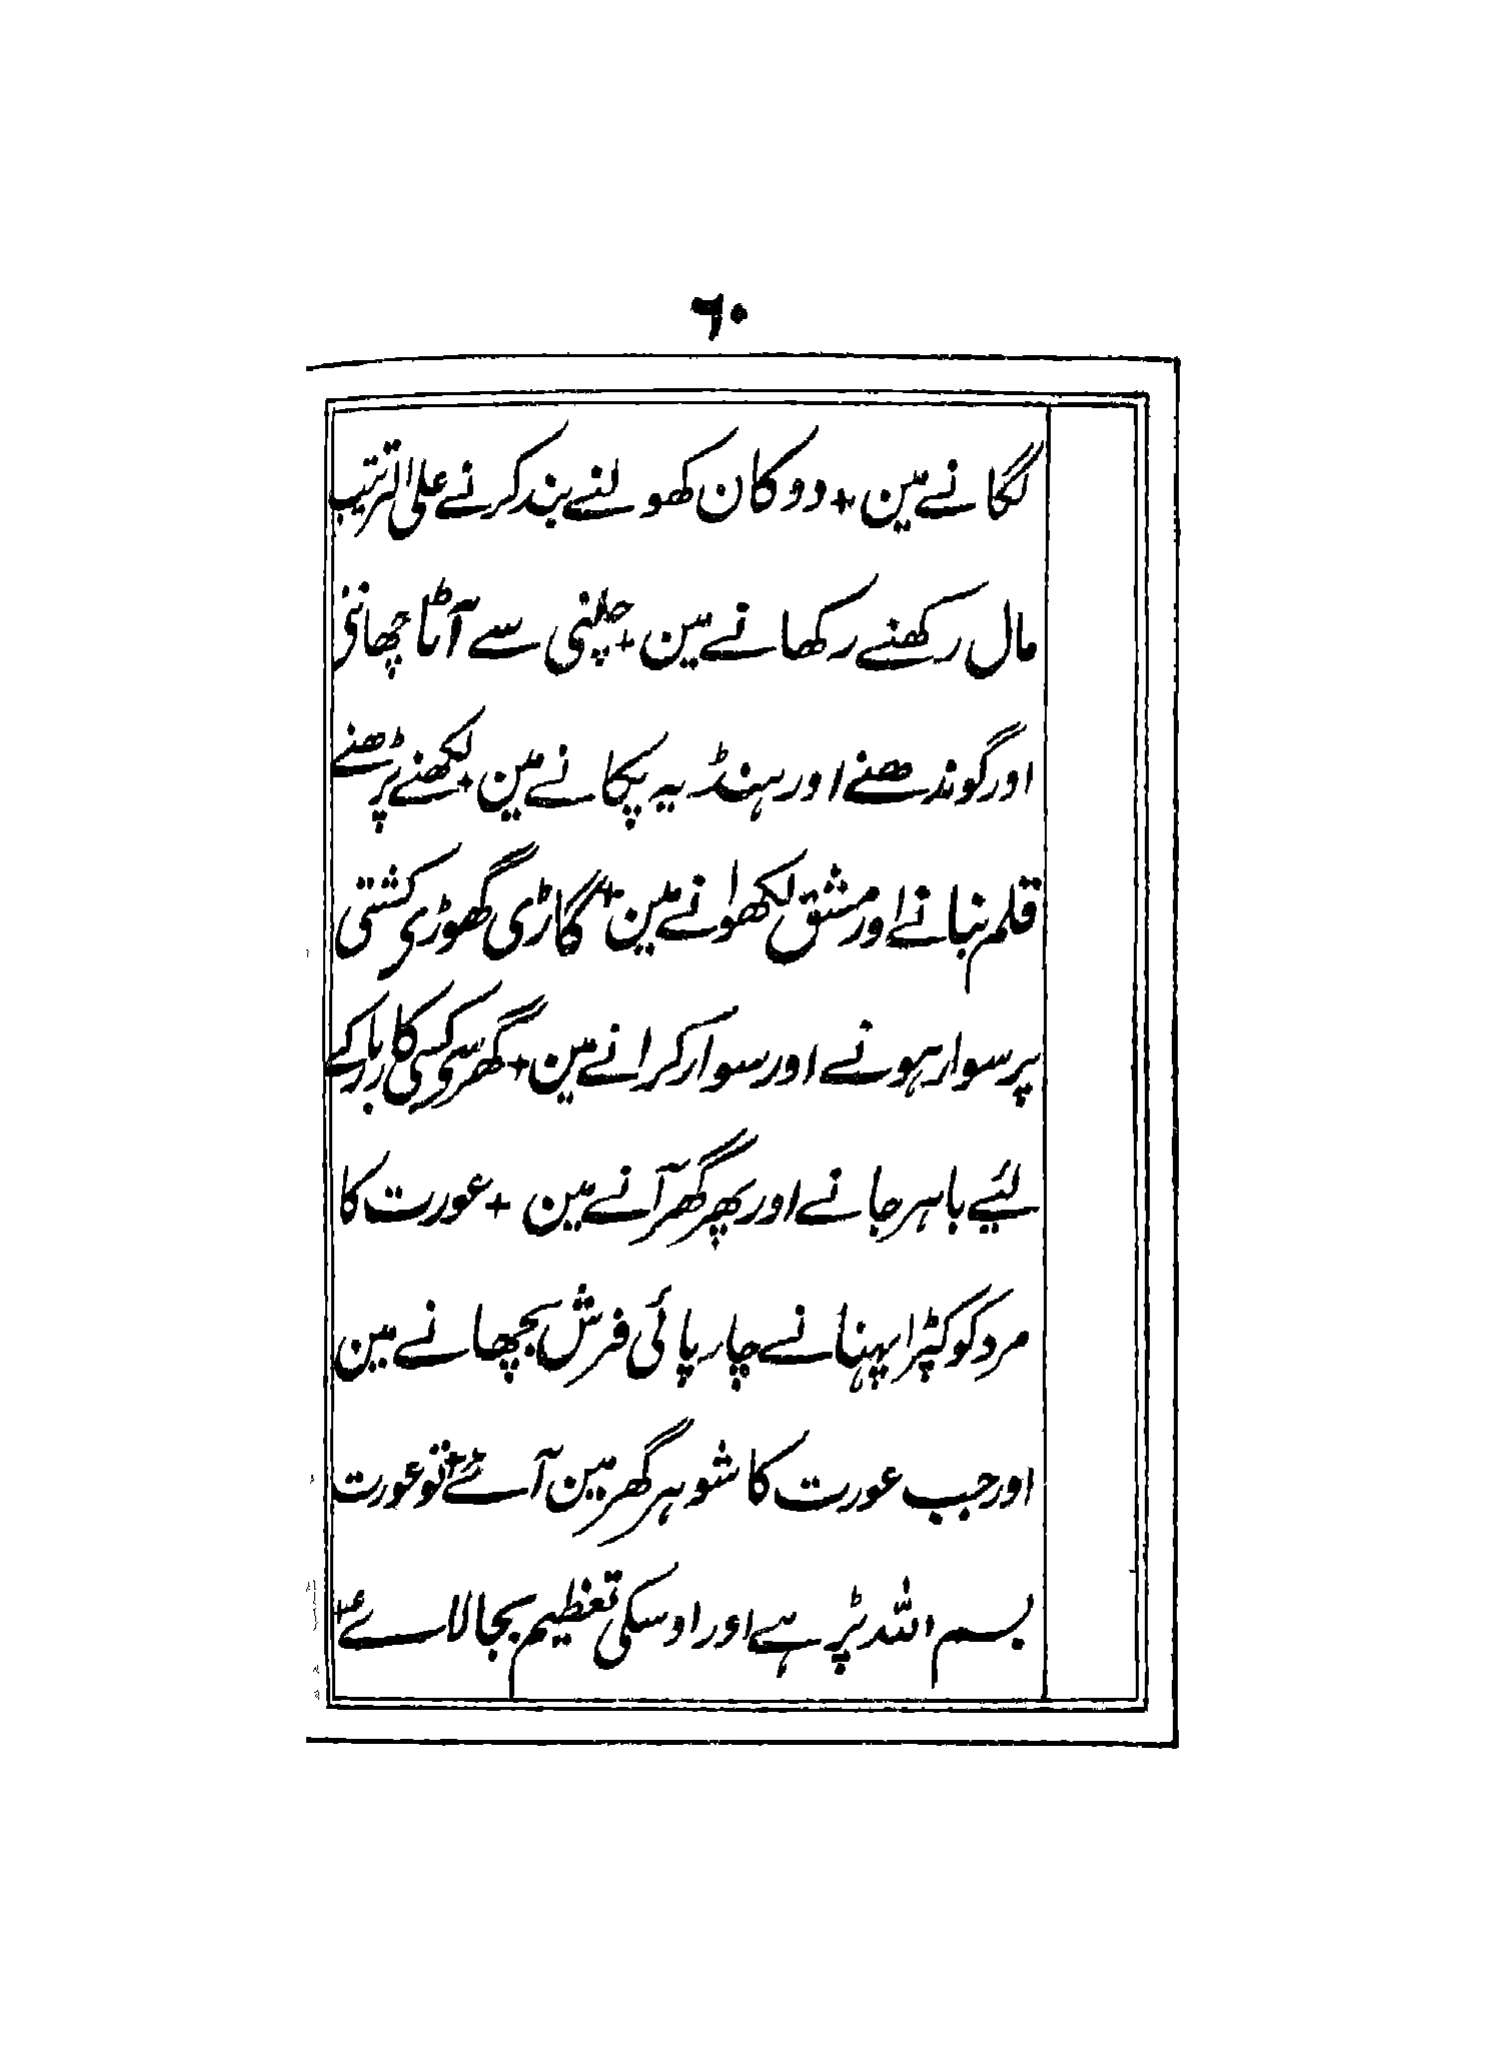 ٦٠
لگانے مین + دوکان کھولنے بند کرنے علی الترتیب
مال رکھنے رکھانے مین + چلنی سے آٹا چھاننی
اور گوندھنے اور ہنڈیہ پکانے مین + لکھنے پڑھنے
قلم بنانے اور مشق لکھوانے مین + گاڑی گھوڑی کشتی
پر سوار ہونے اور سوار کرانے مین + گھر سی کسی کاربار کے
لئیے باہر جانے اور پھر گھر آنے مین + عورت کا
مرد کو کپڑا پہنانے چارپائی فرش بچھانے مین
اور جب عورت کا شوہر گھر مین آئے + تو عورت
بسم اللہ پڑہے اور اوسکی تعظیم بجا لائے +